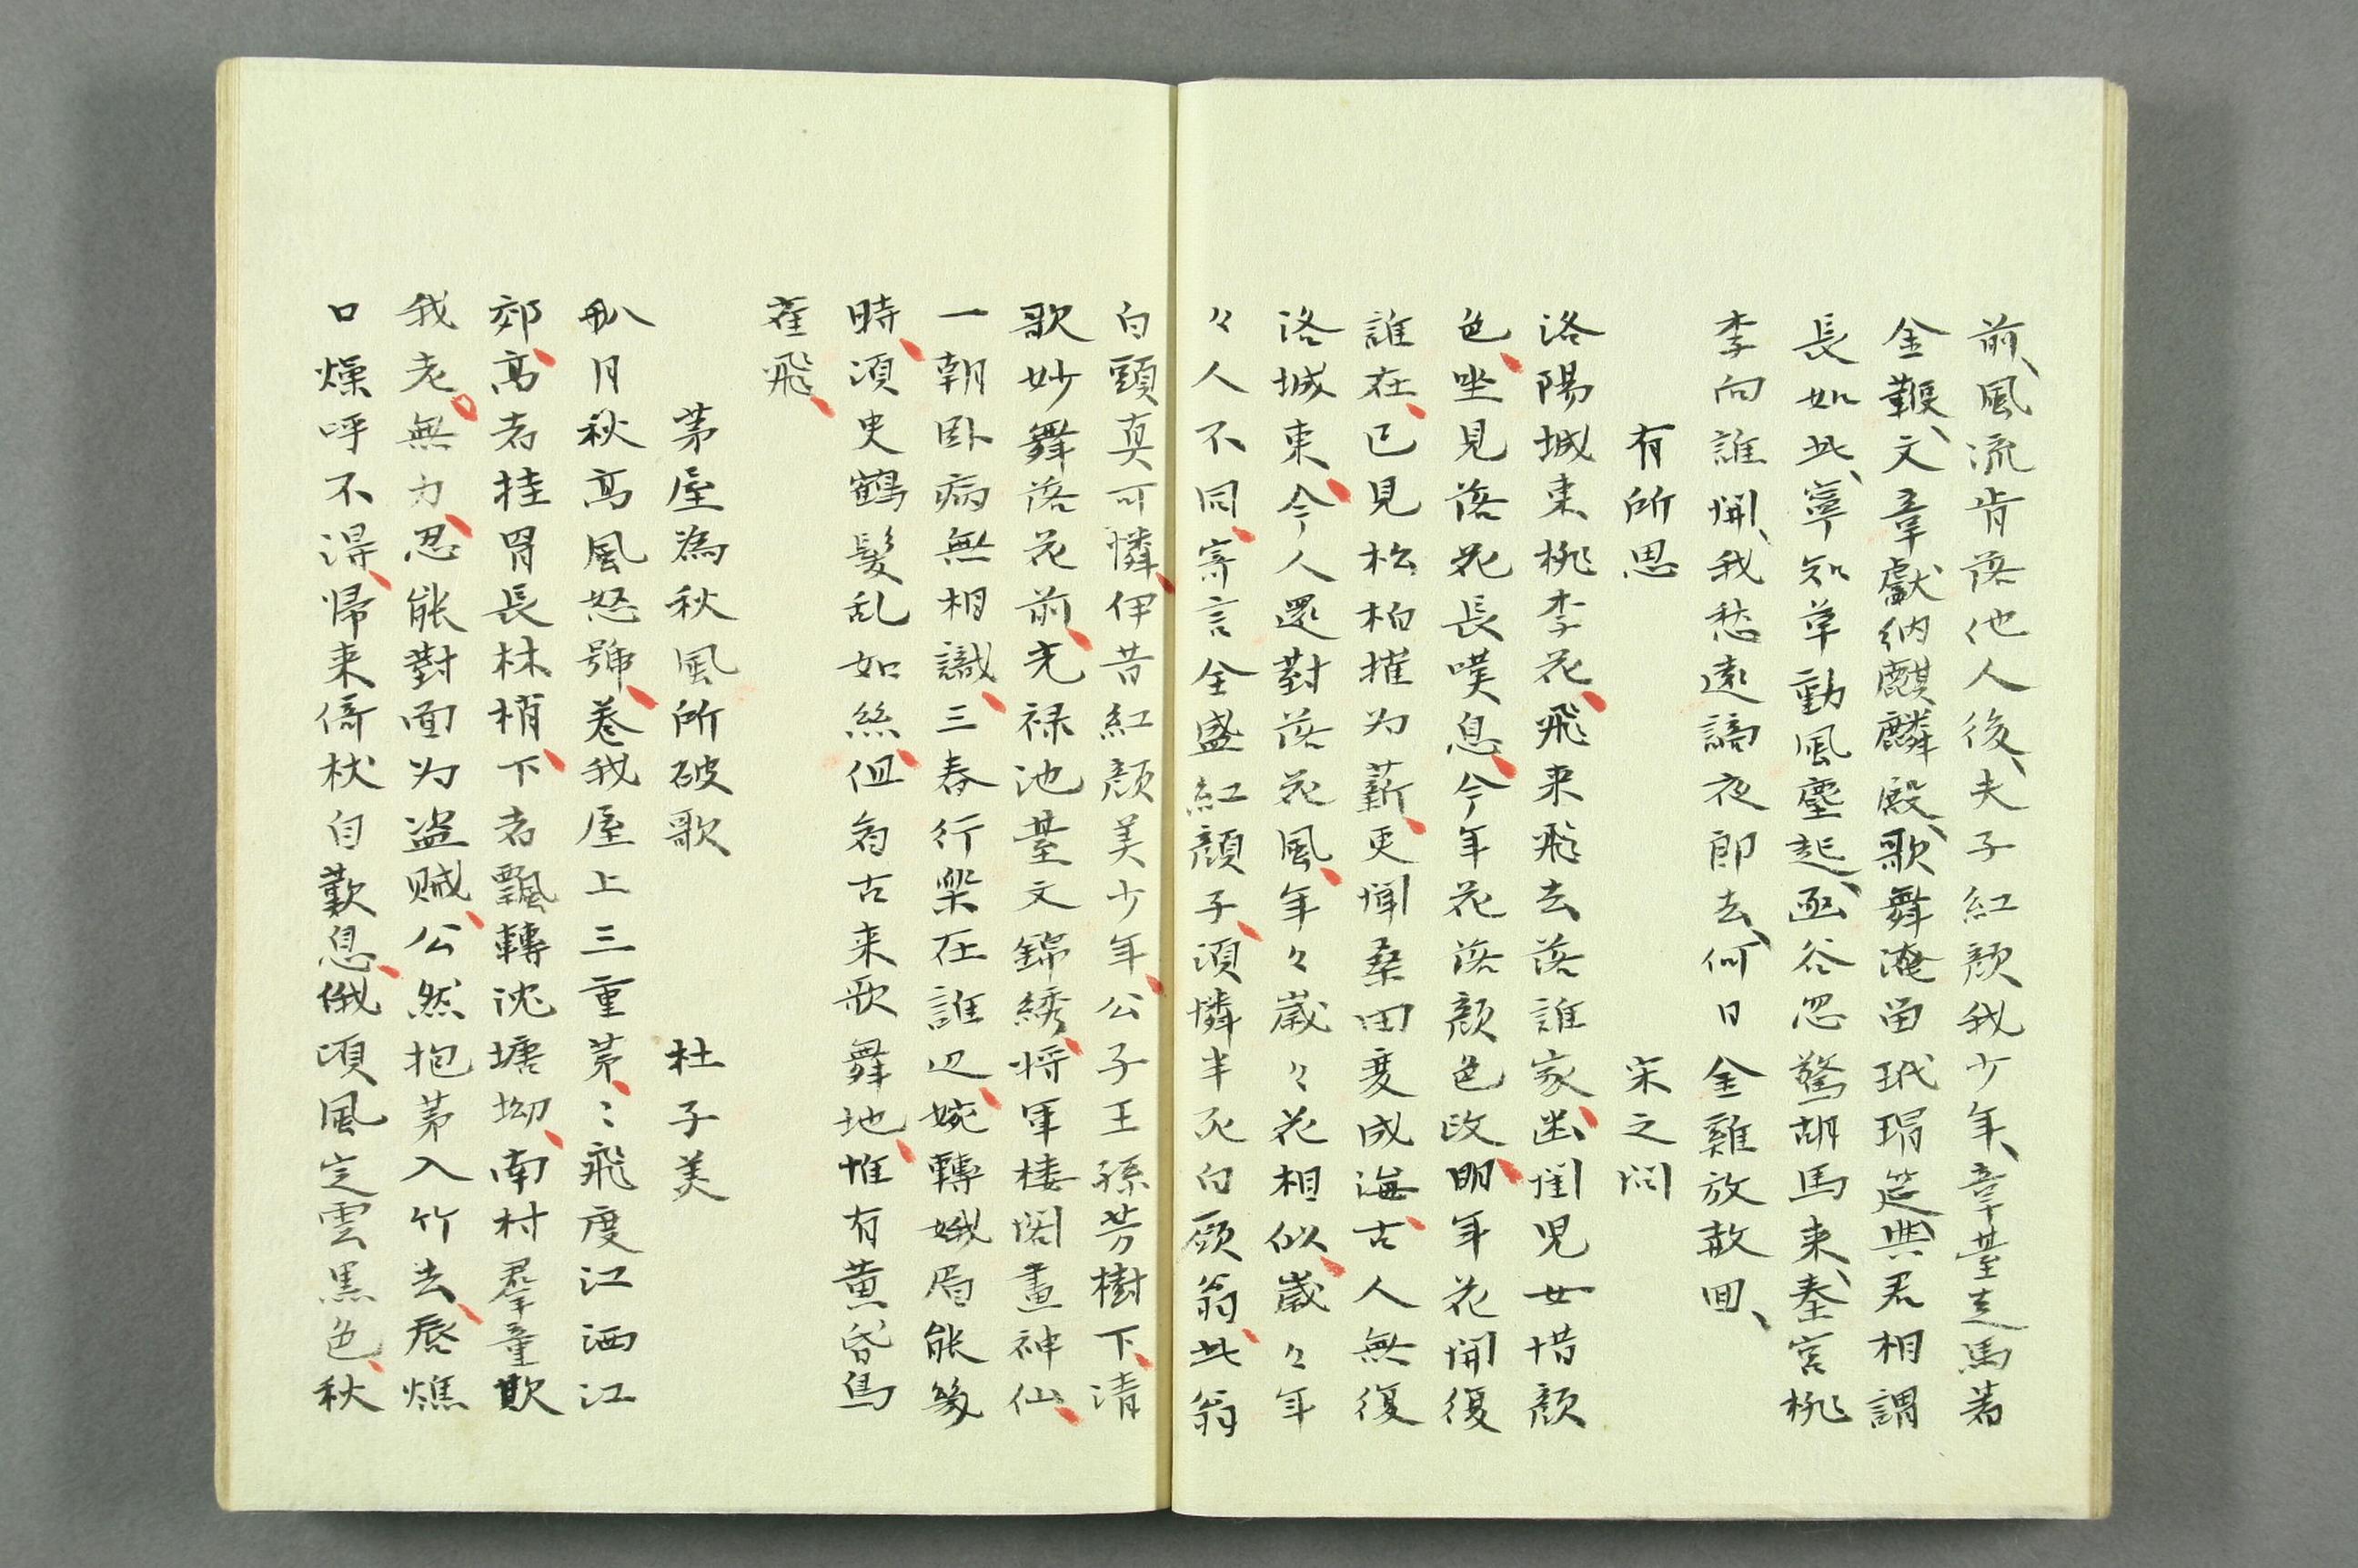 前、風流肯落他人後、夫子紅顔我少年、章臺走馬著
金鞭、文章獻納麒麟殿、歌舞淹留玳瑁筵、與君相謂
長如此、寧知草動風塵起、函谷忽驚胡馬来、秦宮桃
李向誰開、我愁遠謫夜郎去、何日金雞放赦回、
有所思　宋之問
洛陽城東桃李花、飛来飛去落誰家、幽閨児女惜顔
色、坐見落花長嘆息、今年花落顔色改、明年花開復
誰在、已見松柏摧为薪、更聞桑田変成海、古人無復
洛城東、今人還對落花風、年々歳々花相似、歳々年
々人不同、寄言全盛紅顔子、須憐半死白頭翁、此翁
白頭真可憐、伊昔紅顔美少年、公子王孫芳樹下、清
歌妙舞落花前、光禄池臺文錦綉、将軍楼閣畫神仙、
一朝卧病無相識、三春行樂在誰辺、婉轉娥眉能幾
時、須臾鶴髪乱如絲、但看古来歌舞地、惟有黄昏鳥
雀飛、
茅屋為秋風所破歌　杜子美
八月秋高風怒號、巻我屋上三重茅、〻飛度江洒江
郊、高者挂罥長林梢、下者飄轉沈塘坳、南村羣童欺
我老無力、忍能對面为盗賊、公然抱茅入竹去、唇燋
口燥呼不得、帰来倚杖自歎息、俄頃風定雲黒色、秋